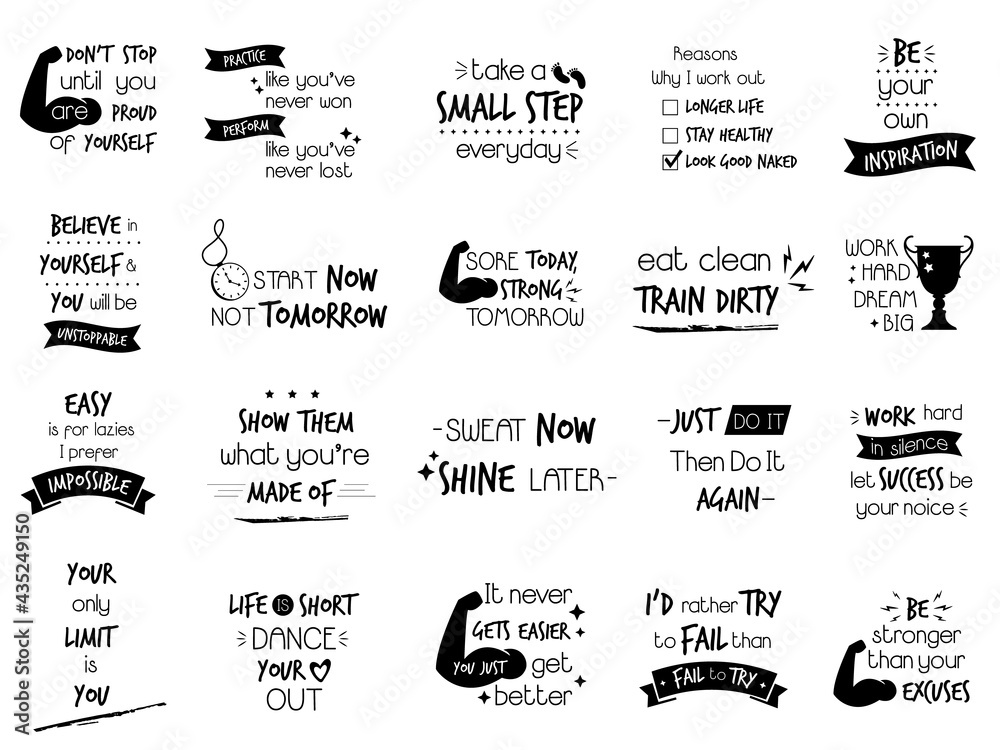 DON'T STOP
until you
are PROUD
of YOURSELF
PRACTICE
like you've
never won
PERFORM
like you've
never lost
take a
SMALL STEP
everyday
Reasons
Why I work out
LONGER LIFE
STAY HEALTHY
LOOK GOOD NAKED
BE
your
own
INSPIRATION
BELIEVE in
YOURSELF &
YOU will be
UNSTOPPABLE
START NOW
NOT TOMORROW
SORE TODAY,
STRONG
TOMORROW
eat clean
TRAIN DIRTY
WORK
HARD
DREAM
BIG
EASY
is for lazies
I prefer
IMPOSSIBLE
SHOW THEM
what you're
MADE OF
-SWEAT NOW
SHINE LATER-
-JUST DO IT
Then Do It
AGAIN-
WORK hard
in silence
let SUCCESS be
your noice
YOUR
only
LIMIT
is
YOU
LIFE IS SHORT
DANCE
YOUR
OUT
It never
GETS EASIER
YOU JUST get
better
I'D rather TRY
to FAIL than
FAIL to TRY
BE
stronger
than your
EXCUSES
Adobe Stock | #435249150